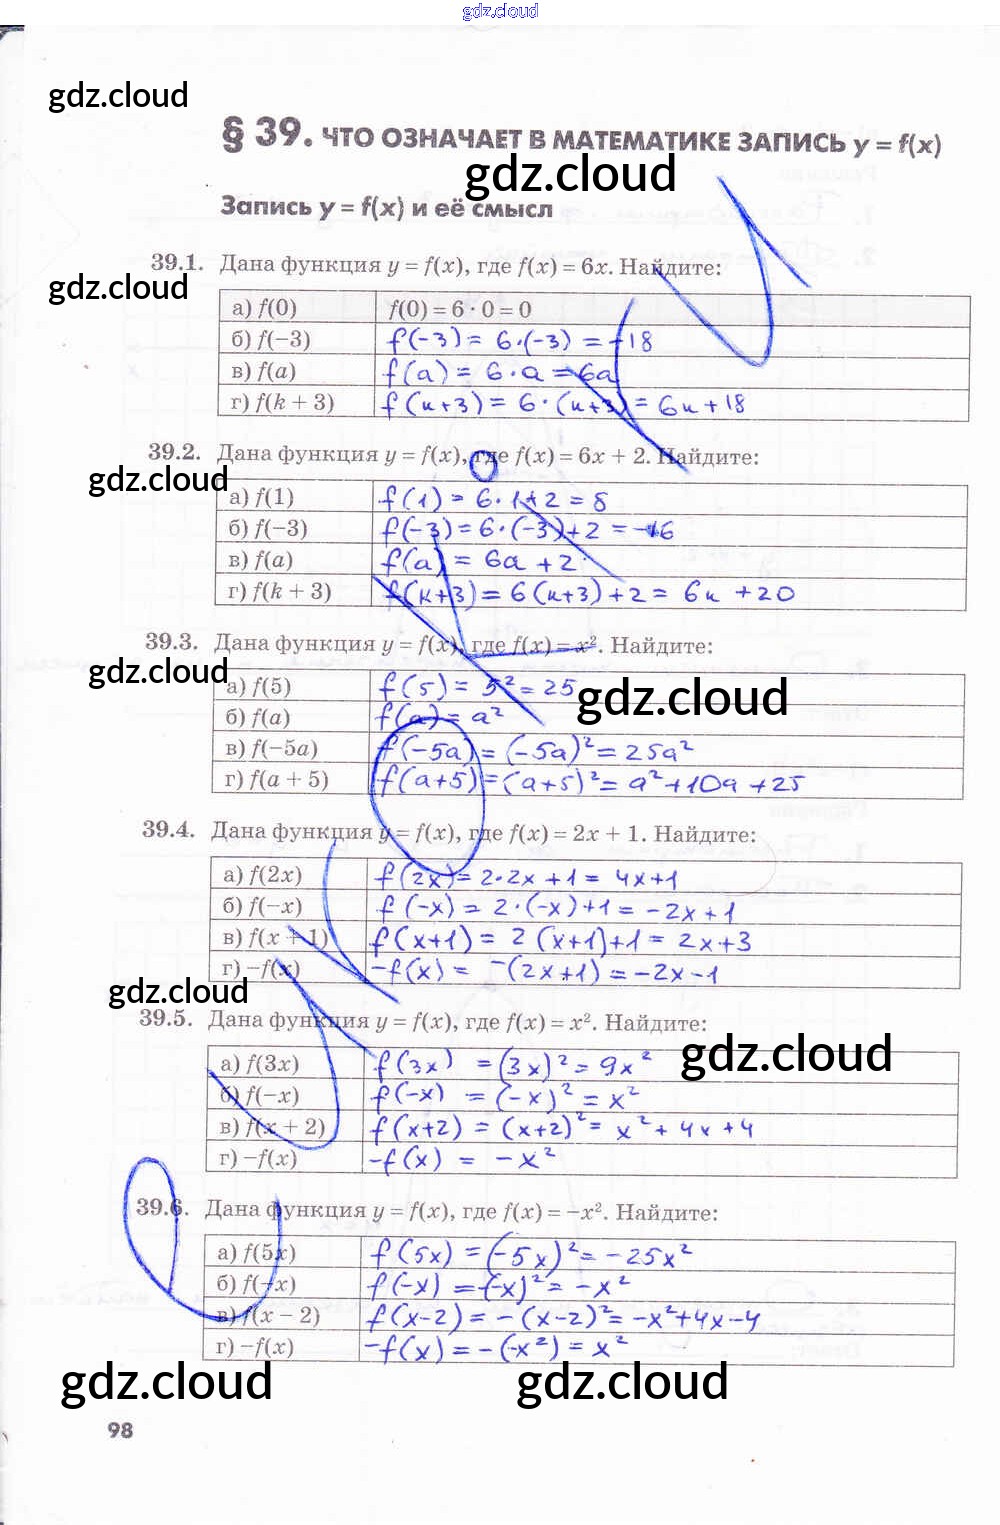 gdz.cloud
gdz.cloud
§ 39. ЧТО ОЗНАЧАЕТ В МАТЕМАТИКЕ ЗАПИСЬ y = f(x)
gdz.cloud
Запись y = f(x) и её смысл
39.1. Дана функция y = f(x), где f(x) = 6x. Найдите:
gdz.cloud
а) f(0) f(0) = 6 · 0 = 0
б) f(−3) f(-3) = 6·(-3) = -18
в) f(a) f(a) = 6·a = 6a
г) f(k + 3) f(k+3) = 6·(k+3) = 6k+18
39.2. Дана функция y = f(x), где f(x) = 6x + 2. Найдите:
gdz.cloud
а) f(1) f(1) = 6·1+2 = 8
б) f(−3) f(-3) = 6·(-3)+2 = -16
в) f(a) f(a) = 6a + 2
г) f(k + 3) f(k+3) = 6(k+3)+2 = 6k +20
39.3. Дана функция y = f(x), где f(x) = x². Найдите:
gdz.cloud
а) f(5) f(5) = 5² = 25
gdz.cloud
б) f(a) f(a) = a²
в) f(−5a) f(-5a) = (-5a)² = 25a²
г) f(a + 5) f(a+5) = (a+5)² = a²+10a+25
39.4. Дана функция y = f(x), где f(x) = 2x + 1. Найдите:
а) f(2x) f(2x) = 2·2x +1 = 4x+1
б) f(−x) f(-x) = 2·(-x)+1 = -2x+1
в) f(x + 1) f(x+1) = 2(x+1)+1 = 2x+3
г) −f(x) -f(x) = -(2x+1) = -2x-1
gdz.cloud
39.5. Дана функция y = f(x), где f(x) = x². Найдите:
gdz.cloud
а) f(3x) f(3x) = (3x)² = 9x²
б) f(−x) f(-x) = (-x)² = x²
в) f(x + 2) f(x+2) = (x+2)² = x²+4x+4
г) −f(x) -f(x) = -x²
39.6. Дана функция y = f(x), где f(x) = −x². Найдите:
а) f(5x) f(5x) = (-5x)² = -25x²
б) f(−x) f(-x) = -(-x)² = -x²
в) f(x − 2) f(x-2) = -(x-2)² = -x²+4x-4
г) −f(x) -f(x) = -(-x²) = x²
gdz.cloud
gdz.cloud
98